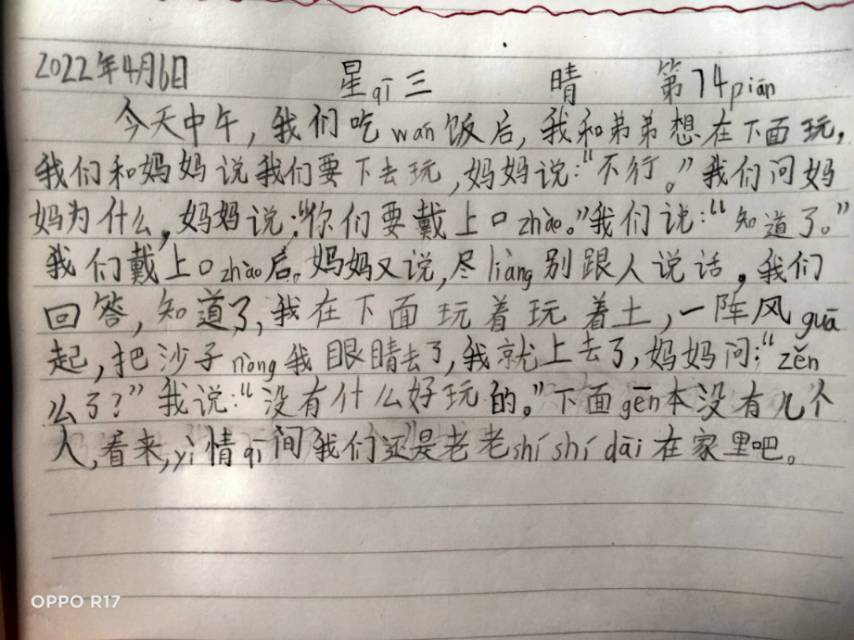 2022年4月6日 星qī三 晴 第74piān
今天中午，我们吃wán饭后，我和弟弟想在下面玩，
我们和妈妈说我们要下去玩，妈妈说：“不行。”我们问妈
妈为什么，妈妈说：“你们要戴上口zhào。”我们说：“知道了。”
我们戴上口zhào后。妈妈又说，尽liàng别跟人说话，我们
回答，知道了，我在下面玩着玩着土，一阵风guā
起，把沙子nòng我眼睛去了，我就上去了，妈妈问：“zěn
么了？”我说：“没有什么好玩的。”下面gēn本没有几个
人，看来，yì情qī间我们还是老老shí shí dāi在家里吧。
OPPO R17